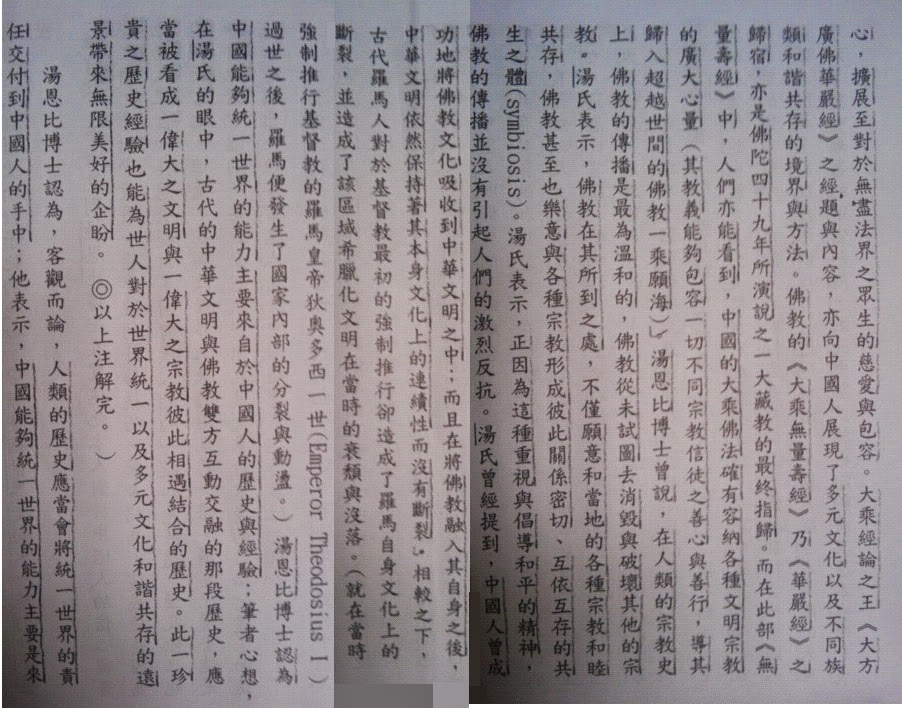 心，擴展至對於無盡法界之眾生的慈愛與包容。大乘經論之王《大方
廣佛華嚴經》之經題與內容，亦向中國人展現了多元文化以及不同族
類和諧共存的境界與方法。佛教的《大乘無量壽經》乃《華嚴經》之
歸宿，亦是佛陀四十九年所演說之一大藏教的最終指歸。而在此部《無
量壽經》中，人們亦能看到，中國的大乘佛法確有容納各種文明宗教
的廣大心量（其教義能夠包容一切不同宗教信徒之善心與善行，導其
歸入超越世間的佛教一乘願海）。湯恩比博士曾說，在人類的宗教史
上，佛教的傳播是最為溫和的，佛教從未試圖去消毀與破壞其他的宗
教。湯氏表示，佛教在其所到之處，不僅願意和當地的各種宗教和睦
共存，佛教甚至也樂意與各種宗教形成彼此關係密切、互依互存的共
生之體(symbiosis)。湯氏表示，正因為這種重視與倡導和平的精神，
佛教的傳播並沒有引起人們的激烈反抗。湯氏曾經提到，中國人曾成
功地將佛教文化吸收到中華文明之中；而且在將佛教融入其自身之後，
中華文明依然保持著其本身文化上的連續性而沒有斷裂。相較之下，
古代羅馬人對於基督教最初的強制推行卻造成了羅馬自身文化上的
斷裂，並造成了該區域希臘化文明在當時的衰頹與沒落。（就在當時
強制推行基督教的羅馬皇帝狄奧多西一世(Emperor Theodosius I)
過世之後，羅馬便發生了國家內部的分裂與動盪。）湯恩比博士認為
中國能夠統一世界的能力主要來自於中國人的歷史與經驗；筆者心想，
在湯氏的眼中，古代的中華文明與佛教雙方互動交融的那段歷史，應
當被看成一偉大之文明與一偉大之宗教彼此相遇結合的歷史。此一珍
貴之歷史經驗也能為世人對於世界統一以及多元文化和諧共存的遠
景帶來無限美好的企盼。◎以上注解完。）
湯恩比博士認為，客觀而論，人類的歷史應當會將統一世界的責
任交付到中國人的手中；他表示，中國能夠統一世界的能力主要是來